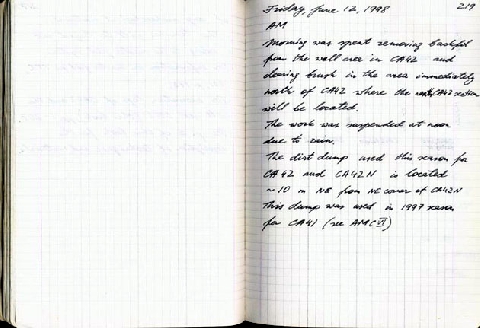 Friday, June 12, 1998 219
AM
Morning was spent removing backfill
from the wall area in CA42 and
clearing brush in the area immediately
north of CA42 where the CA42 extension
will be located.
The work was suspended at noon
due to rain.
The dirt dump used this season for
CA42 and CA42N is located
~10 m NE from NE corner of CA42N
This dump was used in 1997 season
for CA41 (see AMC VI)